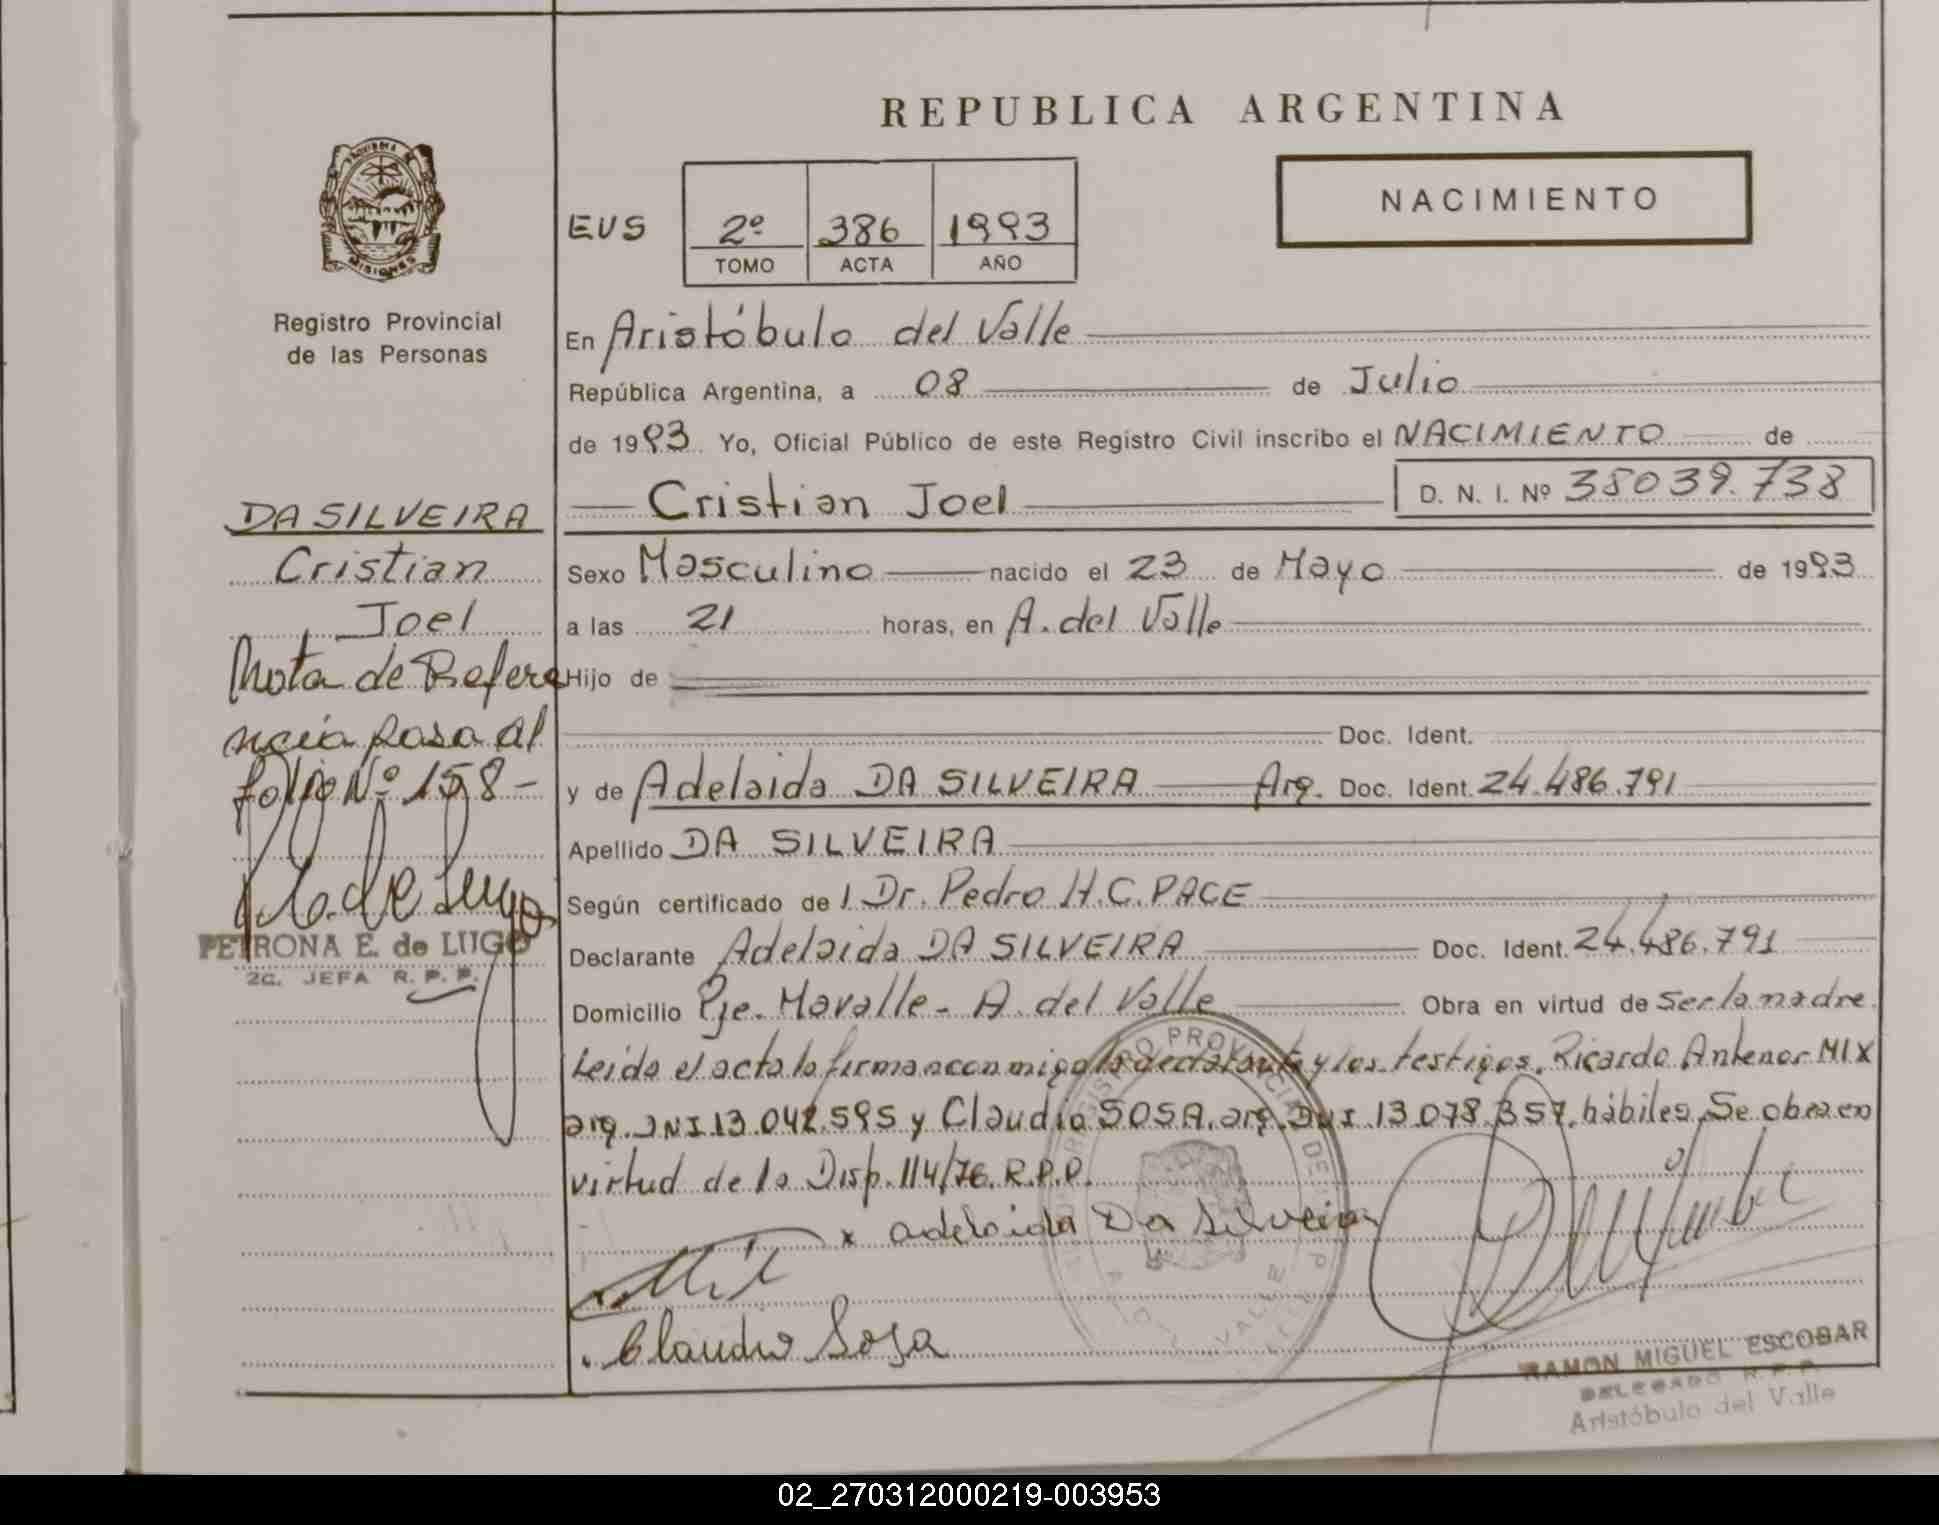 REPUBLICA ARGENTINA
NACIMIENTO
EUS
2º 386 1993
TOMO ACTA AÑO
PROVINCIA DE
MISIONES
Registro Provincial
de las Personas
En Aristóbulo del Valle
República Argentina, a 08 de Julio
de 1993 Yo, Oficial Público de este Registro Civil inscribo el NACIMIENTO de
Cristian Joel D. N. I. Nº 38039.738
DA SILVEIRA
Cristian
Joel
Nota de Refere
ncia pasa al
folio Nº 158-
PETRONA E. de LUGO
2C. JEFA R. P. P.
Sexo Masculino nacido el 23 de Mayo de 1993
a las 21 horas, en A. del Valle
Hijo de
Doc. Ident.
y de Adelaida DA SILVEIRA Arg. Doc. Ident. 24.486.791
Apellido DA SILVEIRA
Según certificado de l Dr. Pedro H.C. PACE
Declarante Adelaida DA SILVEIRA Doc. Ident. 24.486.791
Domicilio Pje. Mavalle - A. del Valle Obra en virtud de Ser la madre
Leida el acta la firman conmigo la declarante y los testigos, Ricardo Antenor MIX
arg. DNI 13.042.595 y Claudio SOSA, arg. DNI 13.078.357, hábiles. Se obra en
virtud de la Disp. 114/76. R.P.P.
x adelaida Da Silveira
Claudio Sosa
REGISTRO PROVINCIAL DE
VALLE
RAMON MIGUEL ESCOBAR
DELEGADO R. P. P.
Aristóbulo del Valle
02_270312000219-003953